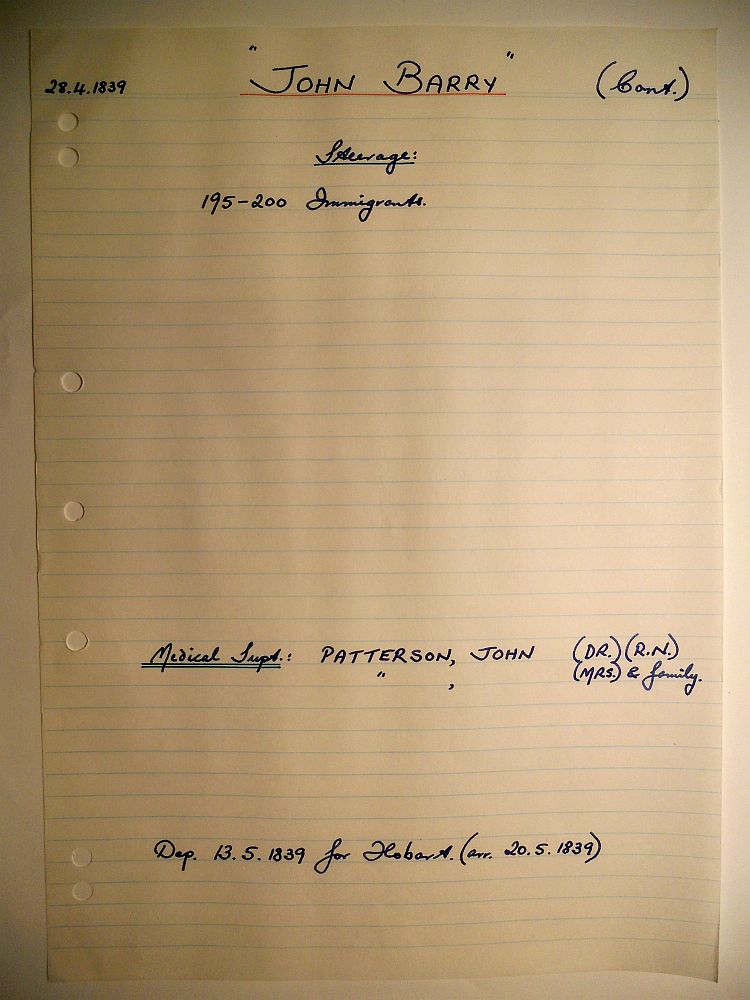 28.4.1839 "JOHN BARRY" (Cont.)
Steerage:
195-200 Immigrants.
Medical Supt.: PATTERSON, JOHN (DR.) (R.N.)
" , (MRS.) & family.
Dep. 13.5.1839 for Hobart. (arr. 20.5.1839)